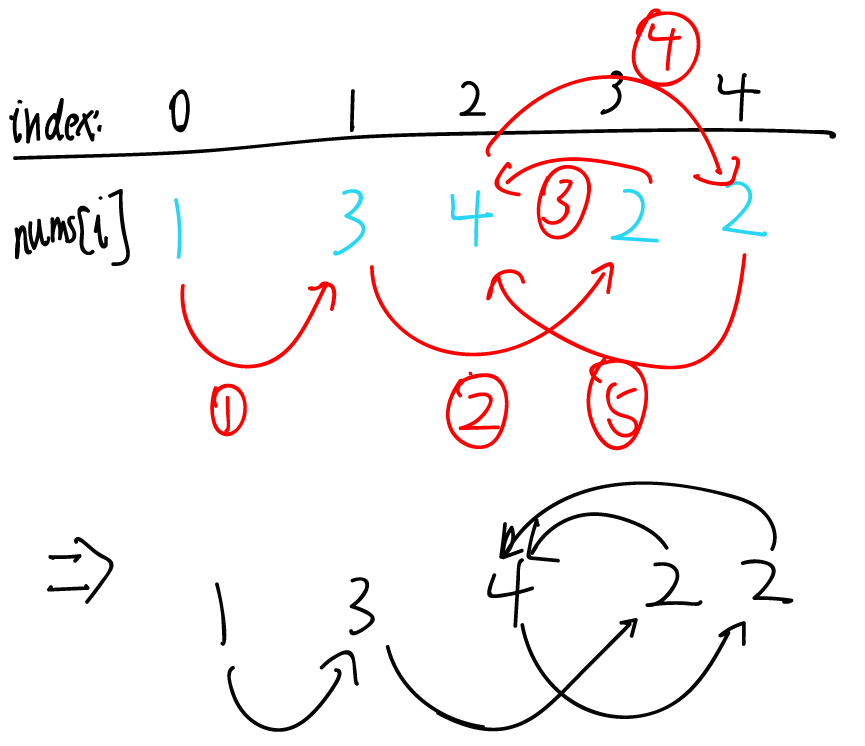 ④
index: 0 1 2 3 4
nums[i] 1 3 4 ③ 2 2
① ② ⑤
⇒ 1 3 4 2 2